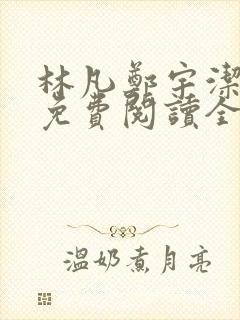 林凡鄭宇潔
免費閱讀全
溫奶煮月亮